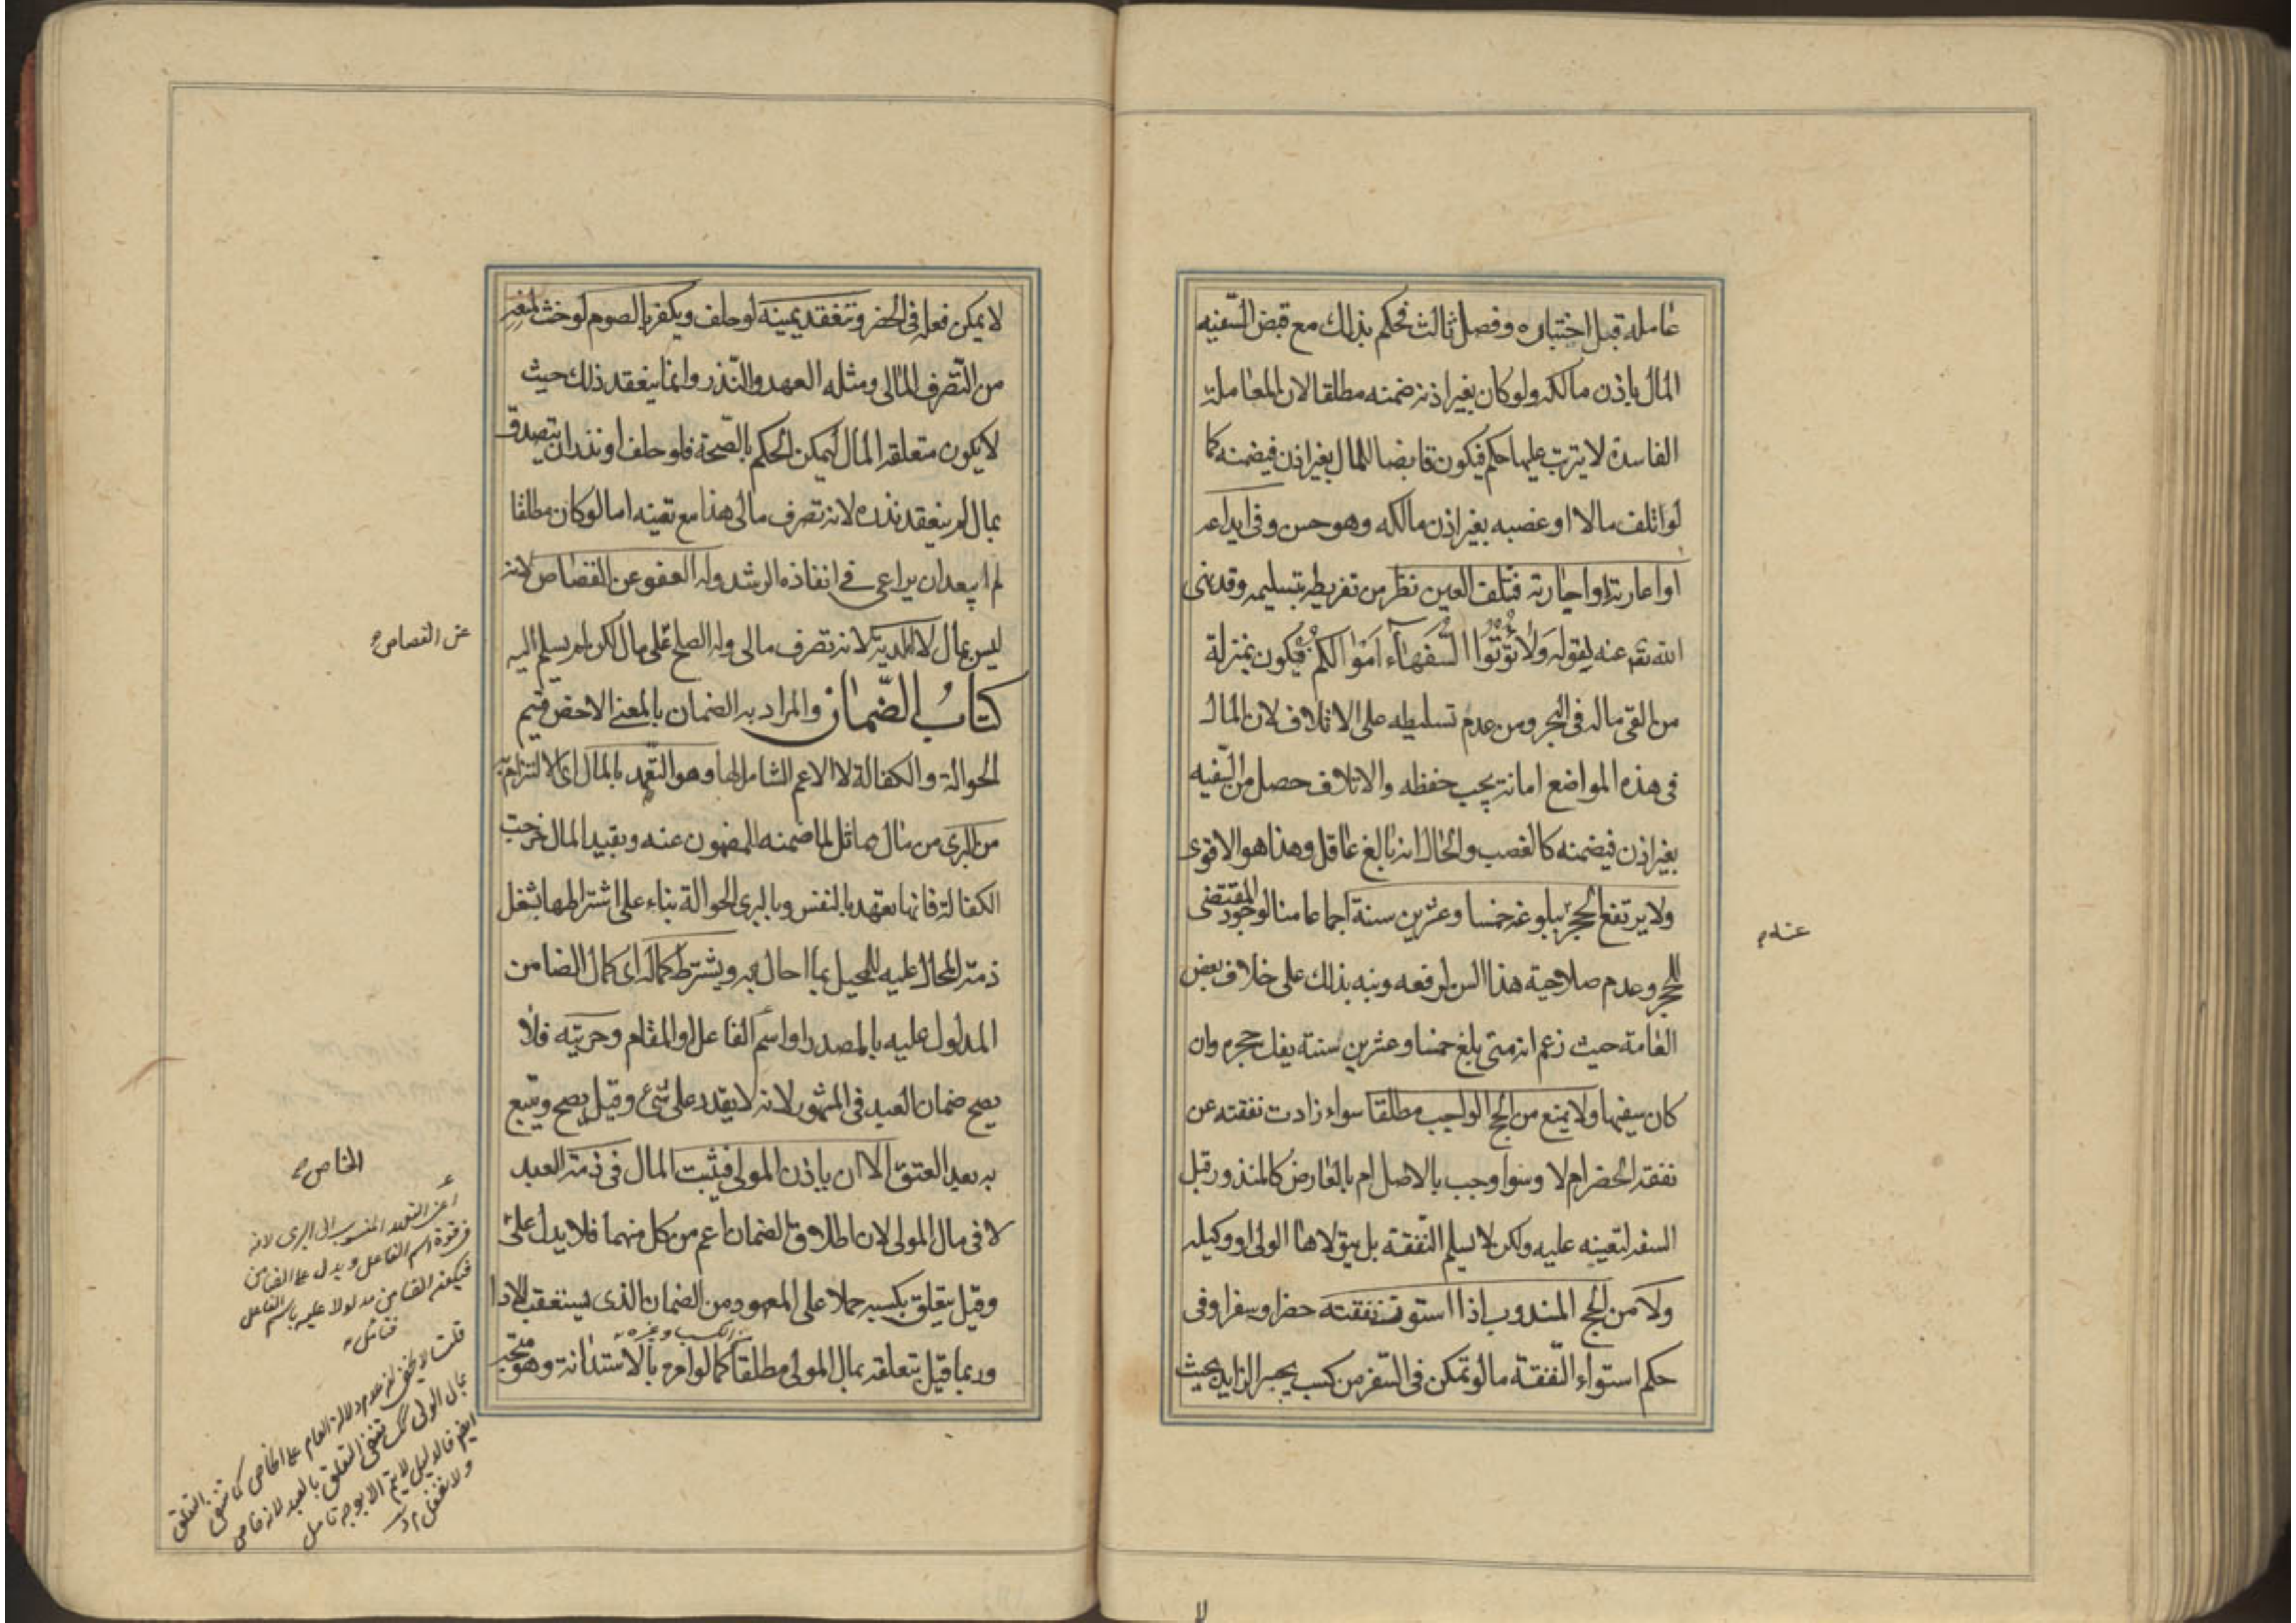 عامله قبل اختباره وفصل ثالث فحكم بذلك مع قبض السفيه
المال باذن مالكه ولو كان بغير اذنه ضمنه مطلقا لان المعاملة
الفاسدة لا يترتب عليها حكم فيكون قابضا للمال بغير اذن فيضمنه كما
لو اتلف مالا او غصبه بغير اذن مالكه وهو حسن وفى ايداعه
او اعارته او اجارته فتلف العين نظر من تفريطه بتسليمه وقد نهى
الله تعم عنه بقوله وَلَا تُؤْتُوا السُّفَهَاءَ اَمْوٰالَكُمْ فيكون بمنزلة
من القى ماله فى البحر ومن عدم تسليطه على الاتلاف لان المال
فى هذه المواضع امانة يجب حفظه والاتلاف حصل من السفيه
بغير اذن فيضمنه كالغصب والحال انه بالغ عاقل وهذا هو الاقوى
ولا يرتفع الحجر ببلوغه خمسا وعشرين سنة اجماعا منا لوجود المقتضى
للحجر وعدم صلاحية هذا السن لرفعه ونبه بذلك على خلاف بعض
العامة حيث زعم انه متى بلغ خمسا وعشرين سنة يفك حجره وان
كان سفيها ولا يمنع من الحج الواجب مطلقا سواء زادت نفقته عن
نفقة الحضر ام لا وسواء وجب بالاصل ام بالعارض كالمنذور قبل
السفه لتعينه عليه ولكن لا يسلم النفقة بل يتولاها الولى او وكيله
ولا من الحج المندوب اذا استوت نفقته حضرا وسفرا وفى
حكم استواء النفقة ما لو تمكن فى السفر من كسب يجبر الزايد بحيث
عنه م
لا
لا يمكن فعله فى الحضر وتنعقد يمينه لو حلف ويكفر بالصوم لو حنث لمنعه
من التصرف المالى ومثله العهد والنذر وانما ينعقد ذلك حيث
لا يكون متعلقه المال ليمكن الحكم بالصحة فلو حلف او نذر ان يتصدق
بمال لم ينعقد نذره لانه تصرف مالى هذا مع تعينه اما لو كان مطلقا
لم يبعد ان يراعى فى انفاذه الرشد وله العفو عن القصاص لانه
ليس بمال لا الدية لانه تصرف مالى وله الصلح على مال لكن لم يسلم اليه
كتابُ الضَّمان والمراد به الضمان بالمعنى الاخص قسيم
الحوالة والكفالة لا الاعم الشامل لها وهو التعهد بالمال اى الالتزام به
من البرى من مال مماثل لما ضمنه للمضمون عنه وبقيد المال خرجت
الكفالة فانها تعهد بالنفس وبالبرى الحوالة بناء على اشتراطها بشغل
ذمة المحال عليه للمحيل بما احال به ويشترط كماله اى كمال الضامن
المدلول عليه بالمصدر او اسم الفاعل او المقام وحريته فلا
يصح ضمان العبد فى المشهور لانه لا يقدر على شئ وقيل يصح ويتبع
به بعد العتق الا ان ياذن المولى فيثبت المال فى ذمة العبد
لا فى مال المولى لان اطلاق الضمان اعم من كل منهما فلا يدل على
وقيل يتعلق بكسبه حملا على المعهود من الضمان الذى يستعقب الادا
من الكسب وغيره
وربما قيل بتعلقه بمال المولى مطلقا كما لو امره بالاستدانة وهو متجه
عن القصاص م
الخاص م
اعنى التعهد المنسوب الى البرى لانه
فى قوة اسم الفاعل ويدل على الضامن
فيكون الضامن مدلولا عليه باسم الفاعل
فتأمل
قلت لا يخفى ان عدم دلالة العام على الخاص كما تنفى التعلق
بمال المولى كك تنفى التعلق بالعبد لانه خاص
ايضا فالدليل لا يتم الا بوجه تأمل
ولا تغفل